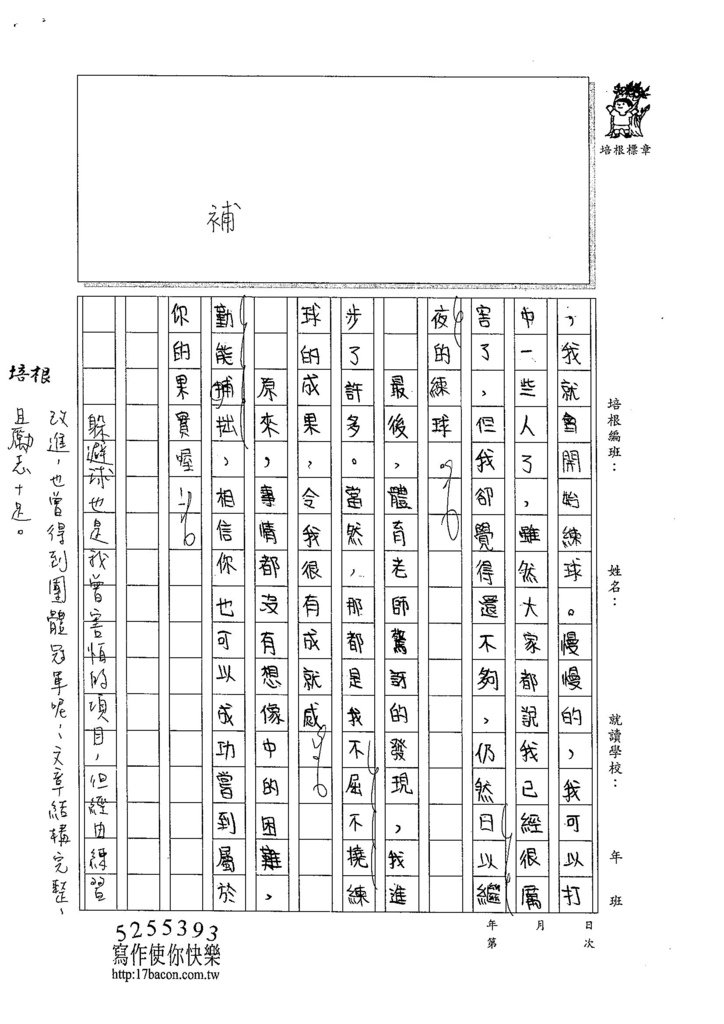 培根標章
補
培根編班：　姓名：　就讀學校：　年　班
，我就會開始練球。慢慢的，我可以打
中一些人了，雖然大家都說我已經很厲
害了，但我卻覺得還不夠，仍然日以繼
夜的練球。
最後，體育老師驚訝的發現，我進
步了許多。當然，那都是我不屈不撓練
球的成果，令我很有成就感。
原來，事情都沒有想像中的困難，
勤能補拙，相信你也可以成功嘗到屬於
你的果實喔！
躲避球也是我曾害怕的項目，但經由練習
改進，也曾得到團體冠軍呢！文章結構完整、
且勵志十足。
培根
年　月　日
第　次
5255393
寫作使你快樂
http:17bacon.com.tw